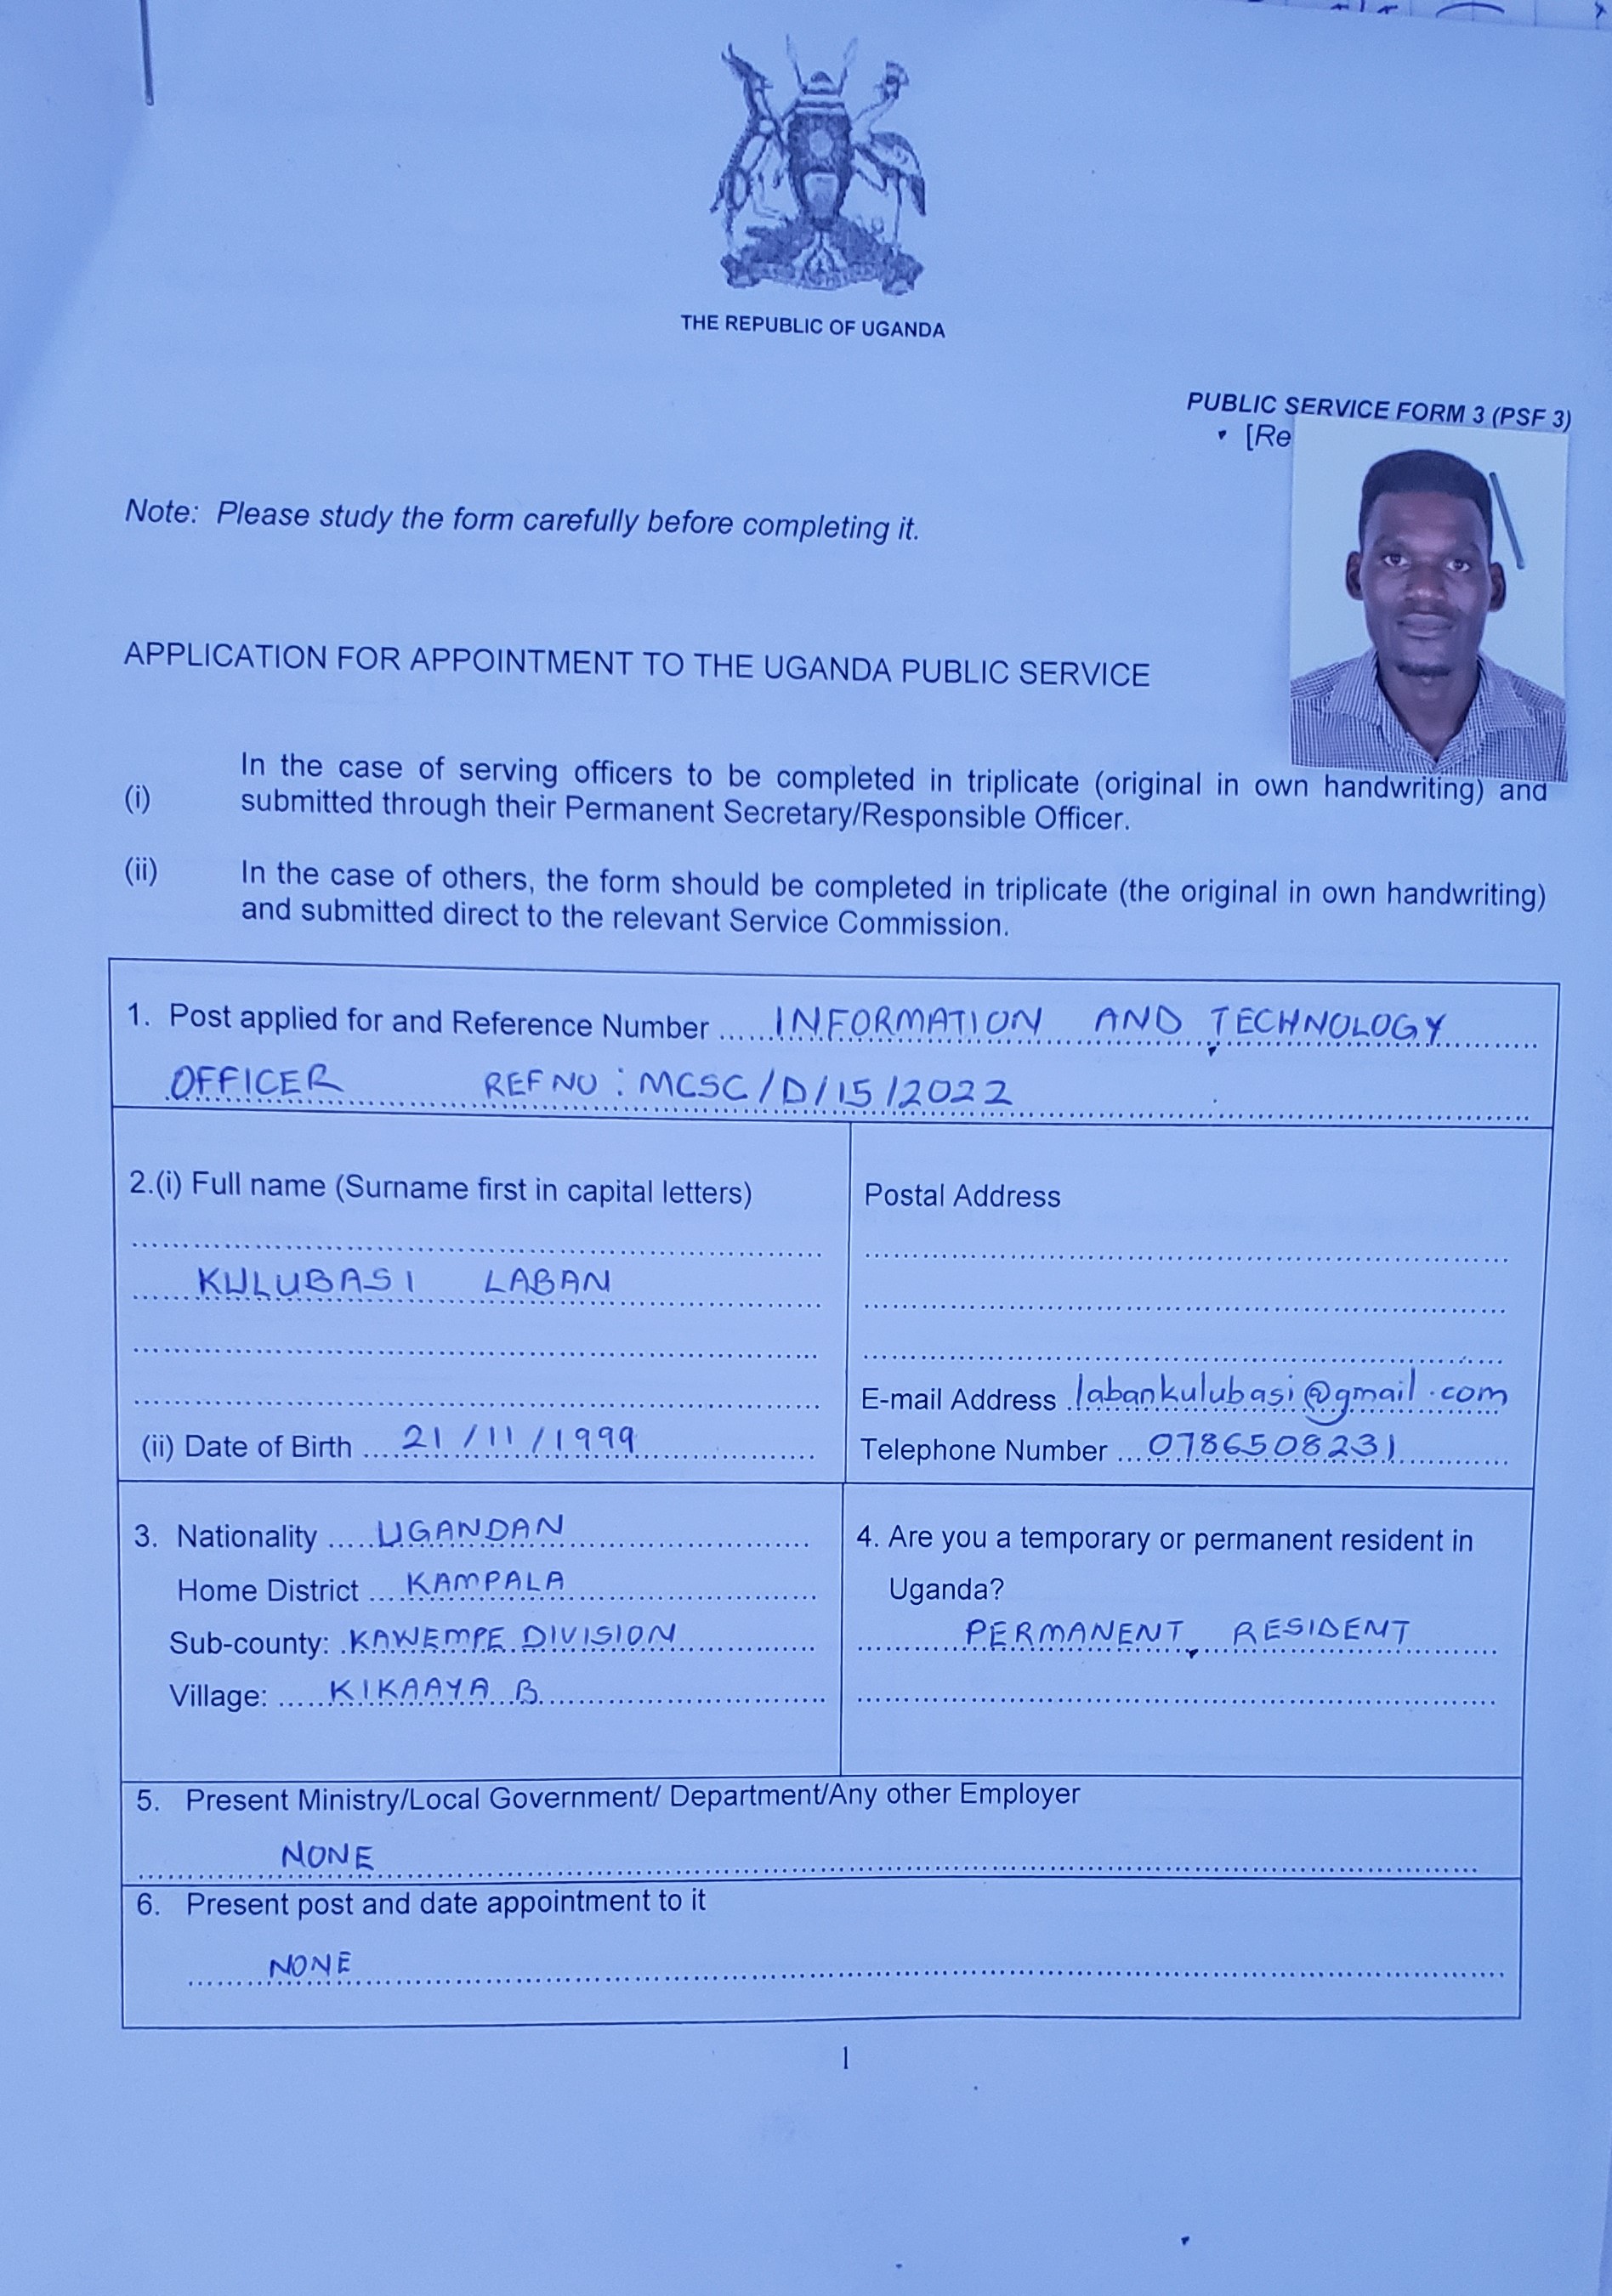 THE REPUBLIC OF UGANDA
PUBLIC SERVICE FORM 3 (PSF 3)
[Re
Note: Please study the form carefully before completing it.
APPLICATION FOR APPOINTMENT TO THE UGANDA PUBLIC SERVICE
(i) In the case of serving officers to be completed in triplicate (original in own handwriting) and
submitted through their Permanent Secretary/Responsible Officer.
(ii) In the case of others, the form should be completed in triplicate (the original in own handwriting)
and submitted direct to the relevant Service Commission.
1. Post applied for and Reference Number ..... INFORMATION AND TECHNOLOGY
OFFICER REF NO : MCSC/D/15/2022
2.(i) Full name (Surname first in capital letters)
KULUBASI LABAN
(ii) Date of Birth .... 21/11/1999
Postal Address
E-mail Address labankulubasi@gmail.com
Telephone Number ... 0786508231
3. Nationality ..... UGANDAN
Home District .... KAMPALA
Sub-county: KAWEMPE DIVISION
Village: ..... KIKAAYA B
4. Are you a temporary or permanent resident in
Uganda?
PERMANENT RESIDENT
5. Present Ministry/Local Government/ Department/Any other Employer
NONE
6. Present post and date appointment to it
NONE
1